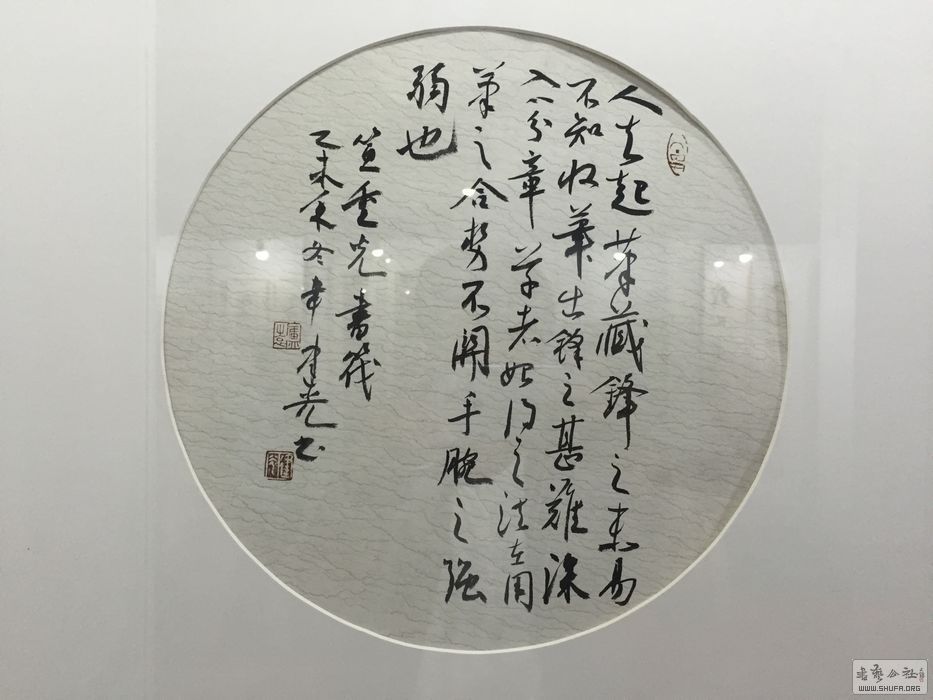 人知起筆藏鋒之未易
不知收筆出鋒之甚難深
入八分章草者始得之法在用
筆之合勢不關手腕之强
弱也
笪重光書筏
乙未冬光书
書藝公社
WWW.SHUFA.ORG